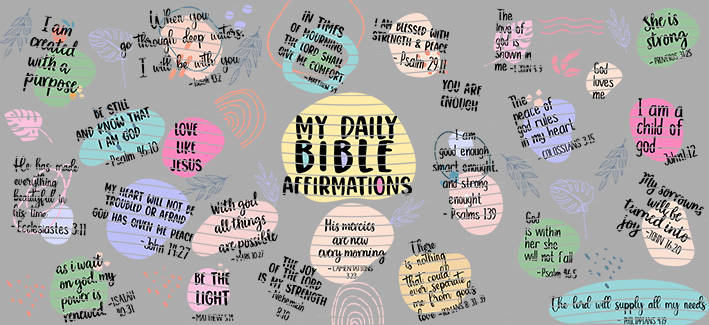 I am
created
with a
purpose
When you
go through deep waters,
I will be with you
- Isaiah 43:2
IN TIMES
OF MOURNING,
THE LORD SHALL
GIVE ME COMFORT
- MATTHEW 5:4
I AM BLESSED WITH
STRENGTH & PEACE
- Psalm 29:11
The
love of
god is
shown in
me - 1 JOHN 4:9
She is
strong
- PROVERBS 31:25
God
loves
me
YOU ARE
ENOUGH
BE STILL
AND KNOW THAT
I AM GOD
- Psalm 46:10
LOVE
LIKE
JESUS
MY DAILY
BIBLE
AFFIRMATIONS
The
peace of
god rules
in my heart
- COLOSSIANS 3:15
I am a
child of
god
- John 1:12
I am
good enough
smart enought,
and strong
enought
- Psalms 139
He has made
everything
beautiful in
his time
- Ecclesiastes 3:11
MY HEART WILL NOT BE
TROUBLED OR AFRAID
GOD HAS GIVEN ME PEACE
- John 14:27
With god
all things
are possible
- MARK 10:27
His mercies
are new
every morning
- LAMENTATIONS
3:23
My sorrows
will be
turned into
joy - JOHN 16:20
God
is within
her she
will not fall
- Psalm 46:5
as i wait
on god, my
power is
renewed - ISAIAH
40:31
BE THE
LIGHT
- MATTHEW 5:14
THE JOY
OF THE LORD
IS MY STRENGTH
- Nehemiah
8:10
There
is nothing
that could
ever separate
me from gods
love - ROMANS 8:31-39
The lord will supply all my needs
- PHILIPPIANS 4:19